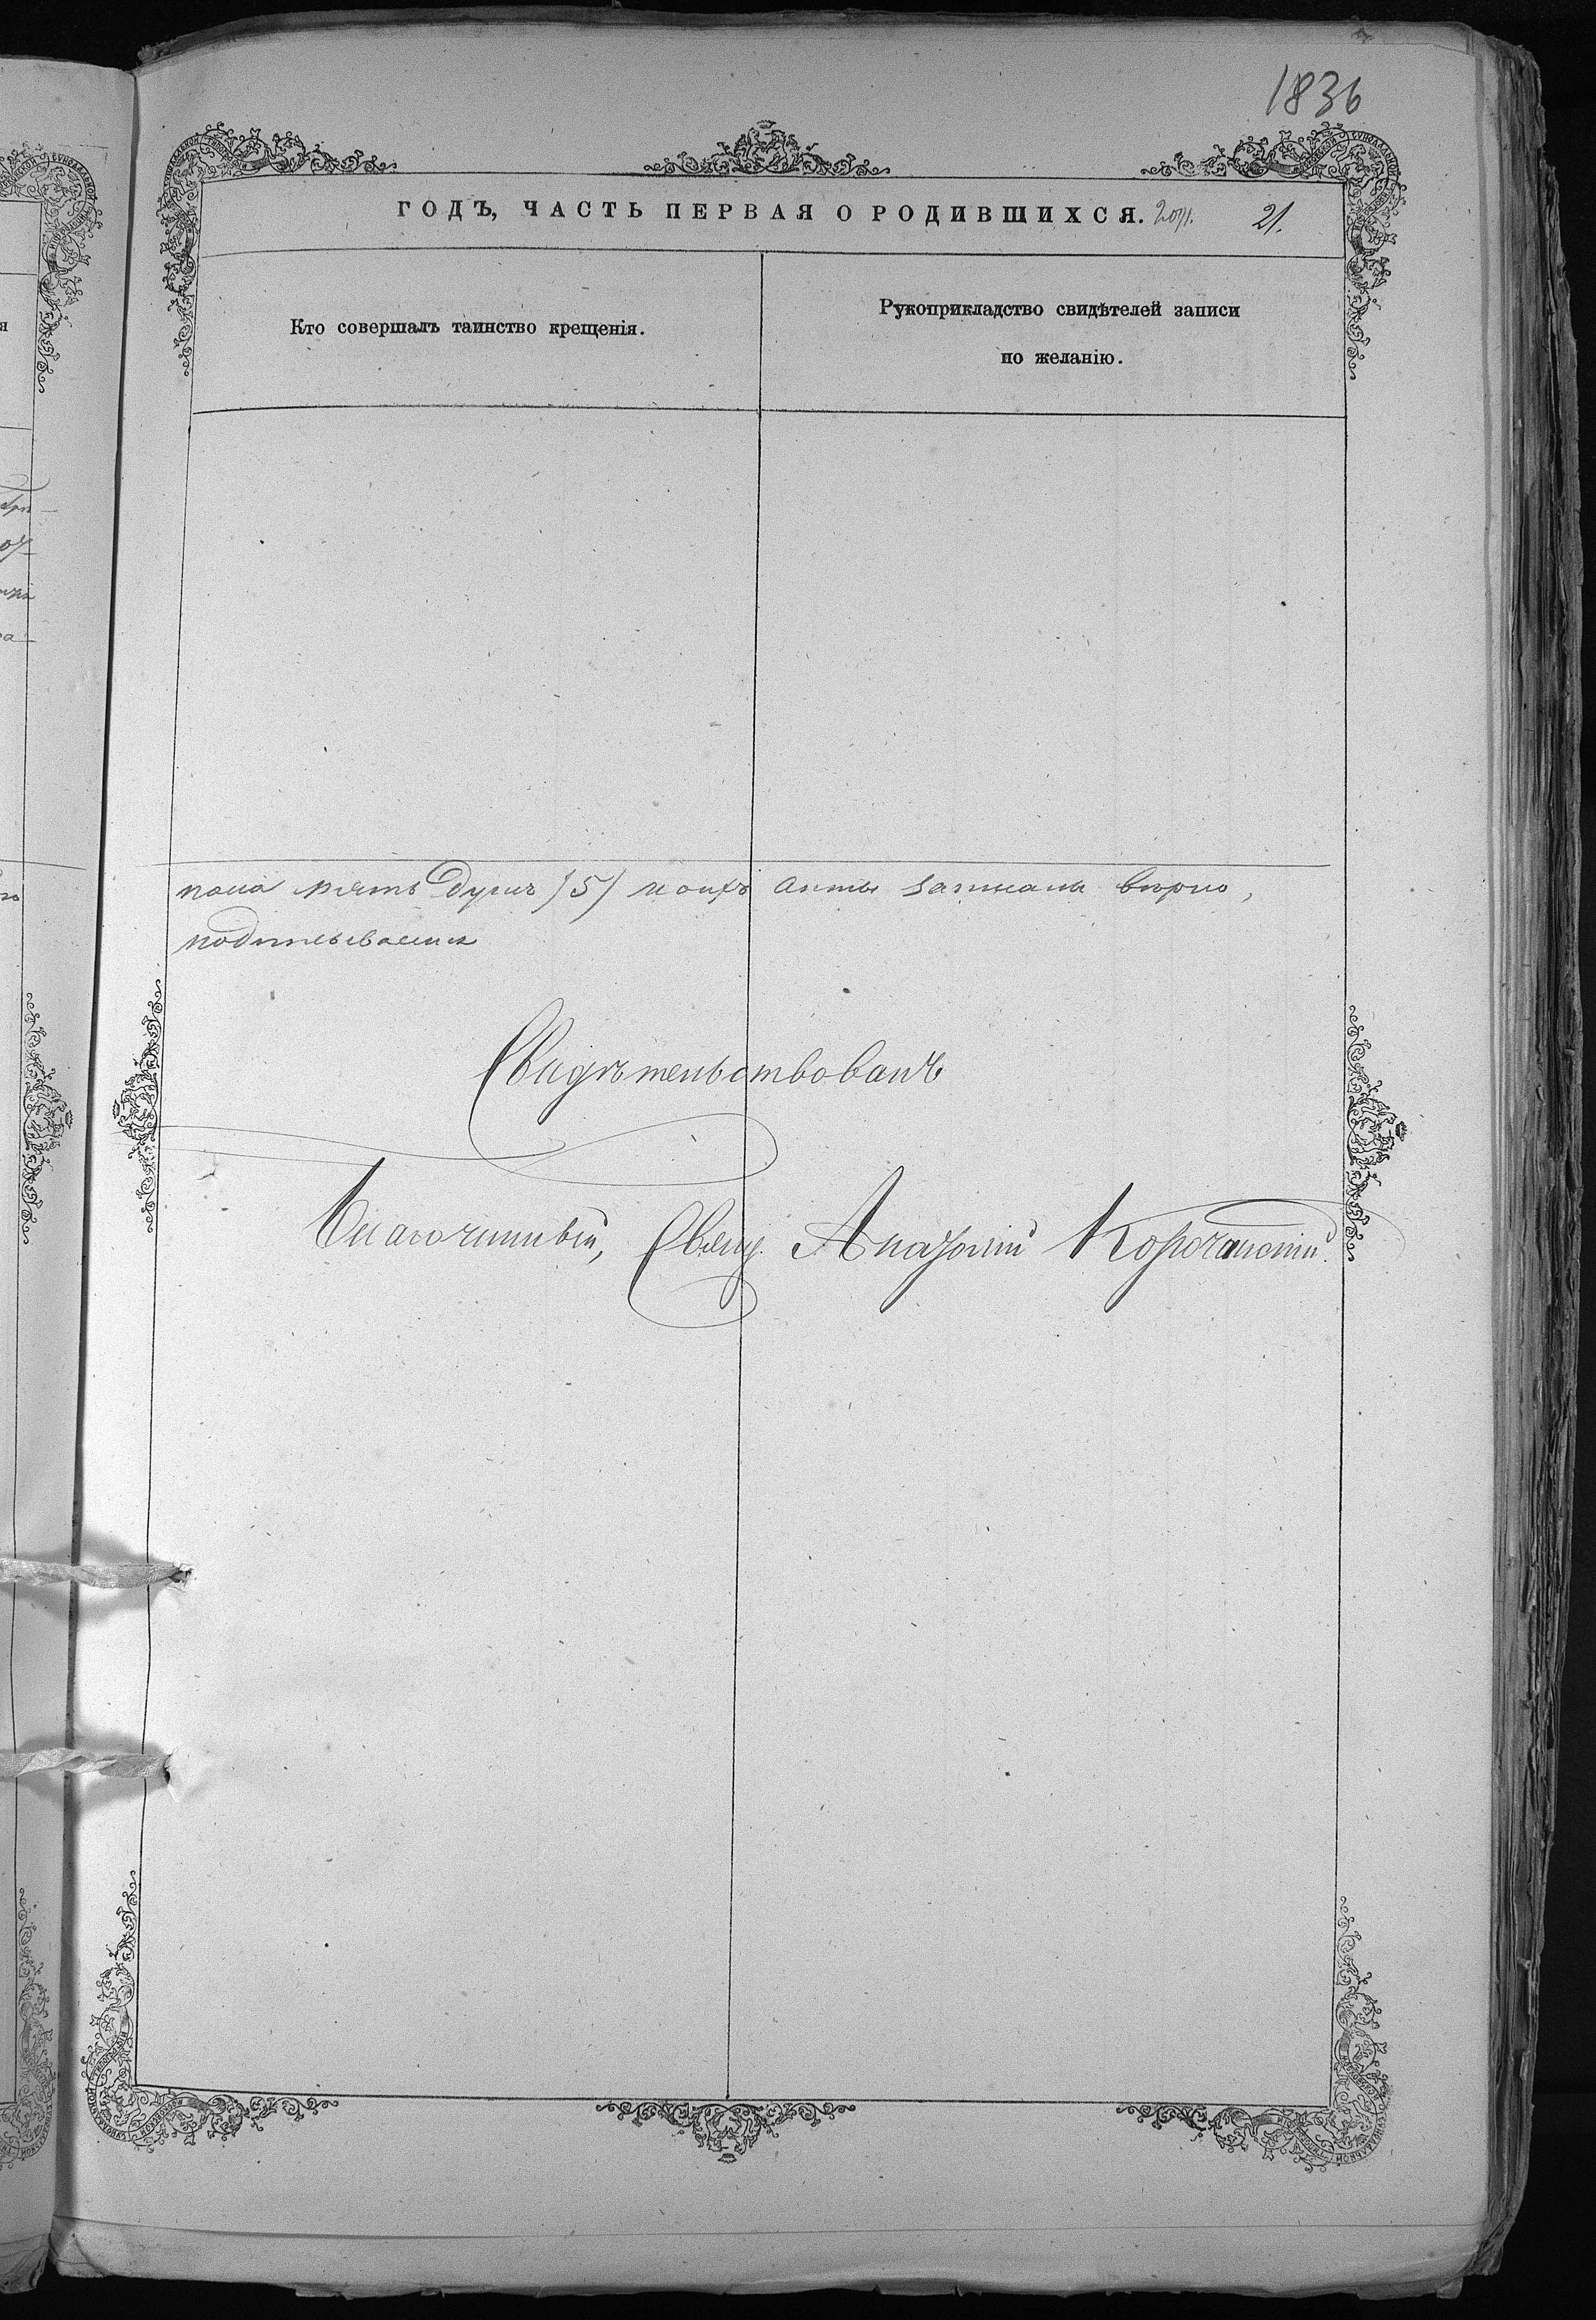 1836
ГОДЪ, ЧАСТЬ ПЕРВАЯ О РОДИВШИХСЯ. 21.
Кто совершалъ таинство крещенія.
Рукоприкладство свидѣтелей записи
по желанію.
пола пять душъ /5/ коихъ акты записаны вѣрно,
подписываемся
Свидѣтельствовалъ
Благочинный, Свящ. Анатолій Корочанскій.